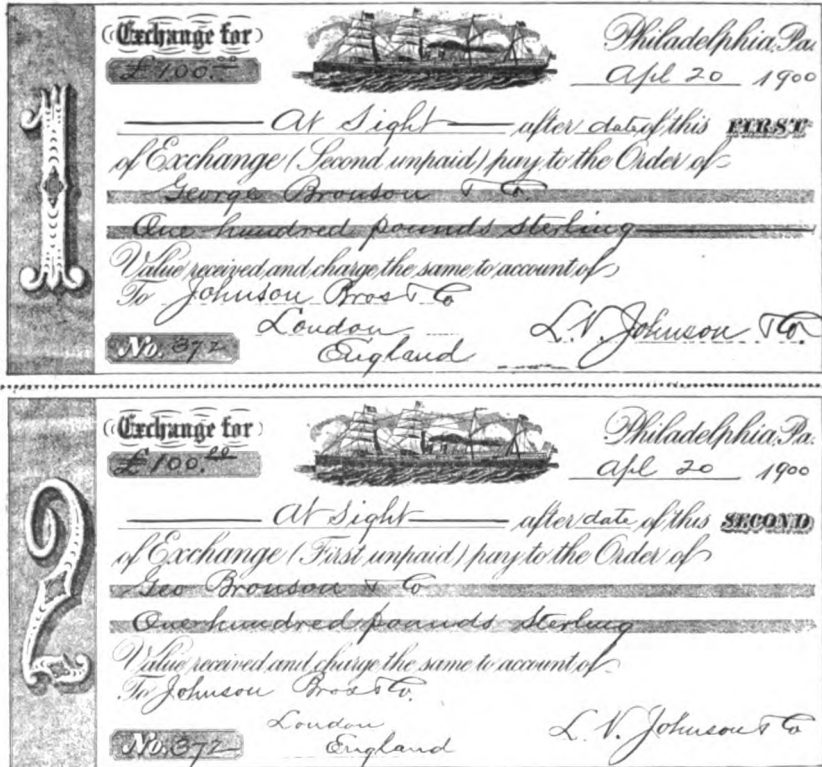 1
Exchange for
£100.00
Philadelphia, Pa.
Apl 20 1900
At Sight after date of this FIRST
of Exchange (Second unpaid) pay to the Order of
George Bronson & Co.
One hundred pounds Sterling
Value received and charge the same to account of
To Johnson Bros & Co
London
England
No. 372
L. V. Johnson & Co.
2
Exchange for
£100.00
Philadelphia, Pa.
Apl 20 1900
At Sight after date of this SECOND
of Exchange (First unpaid) pay to the Order of
Geo Bronson & Co
One hundred pounds Sterling
Value received and charge the same to account of
To Johnson Bros & Co.
London
England
No. 372
L. V. Johnson & Co